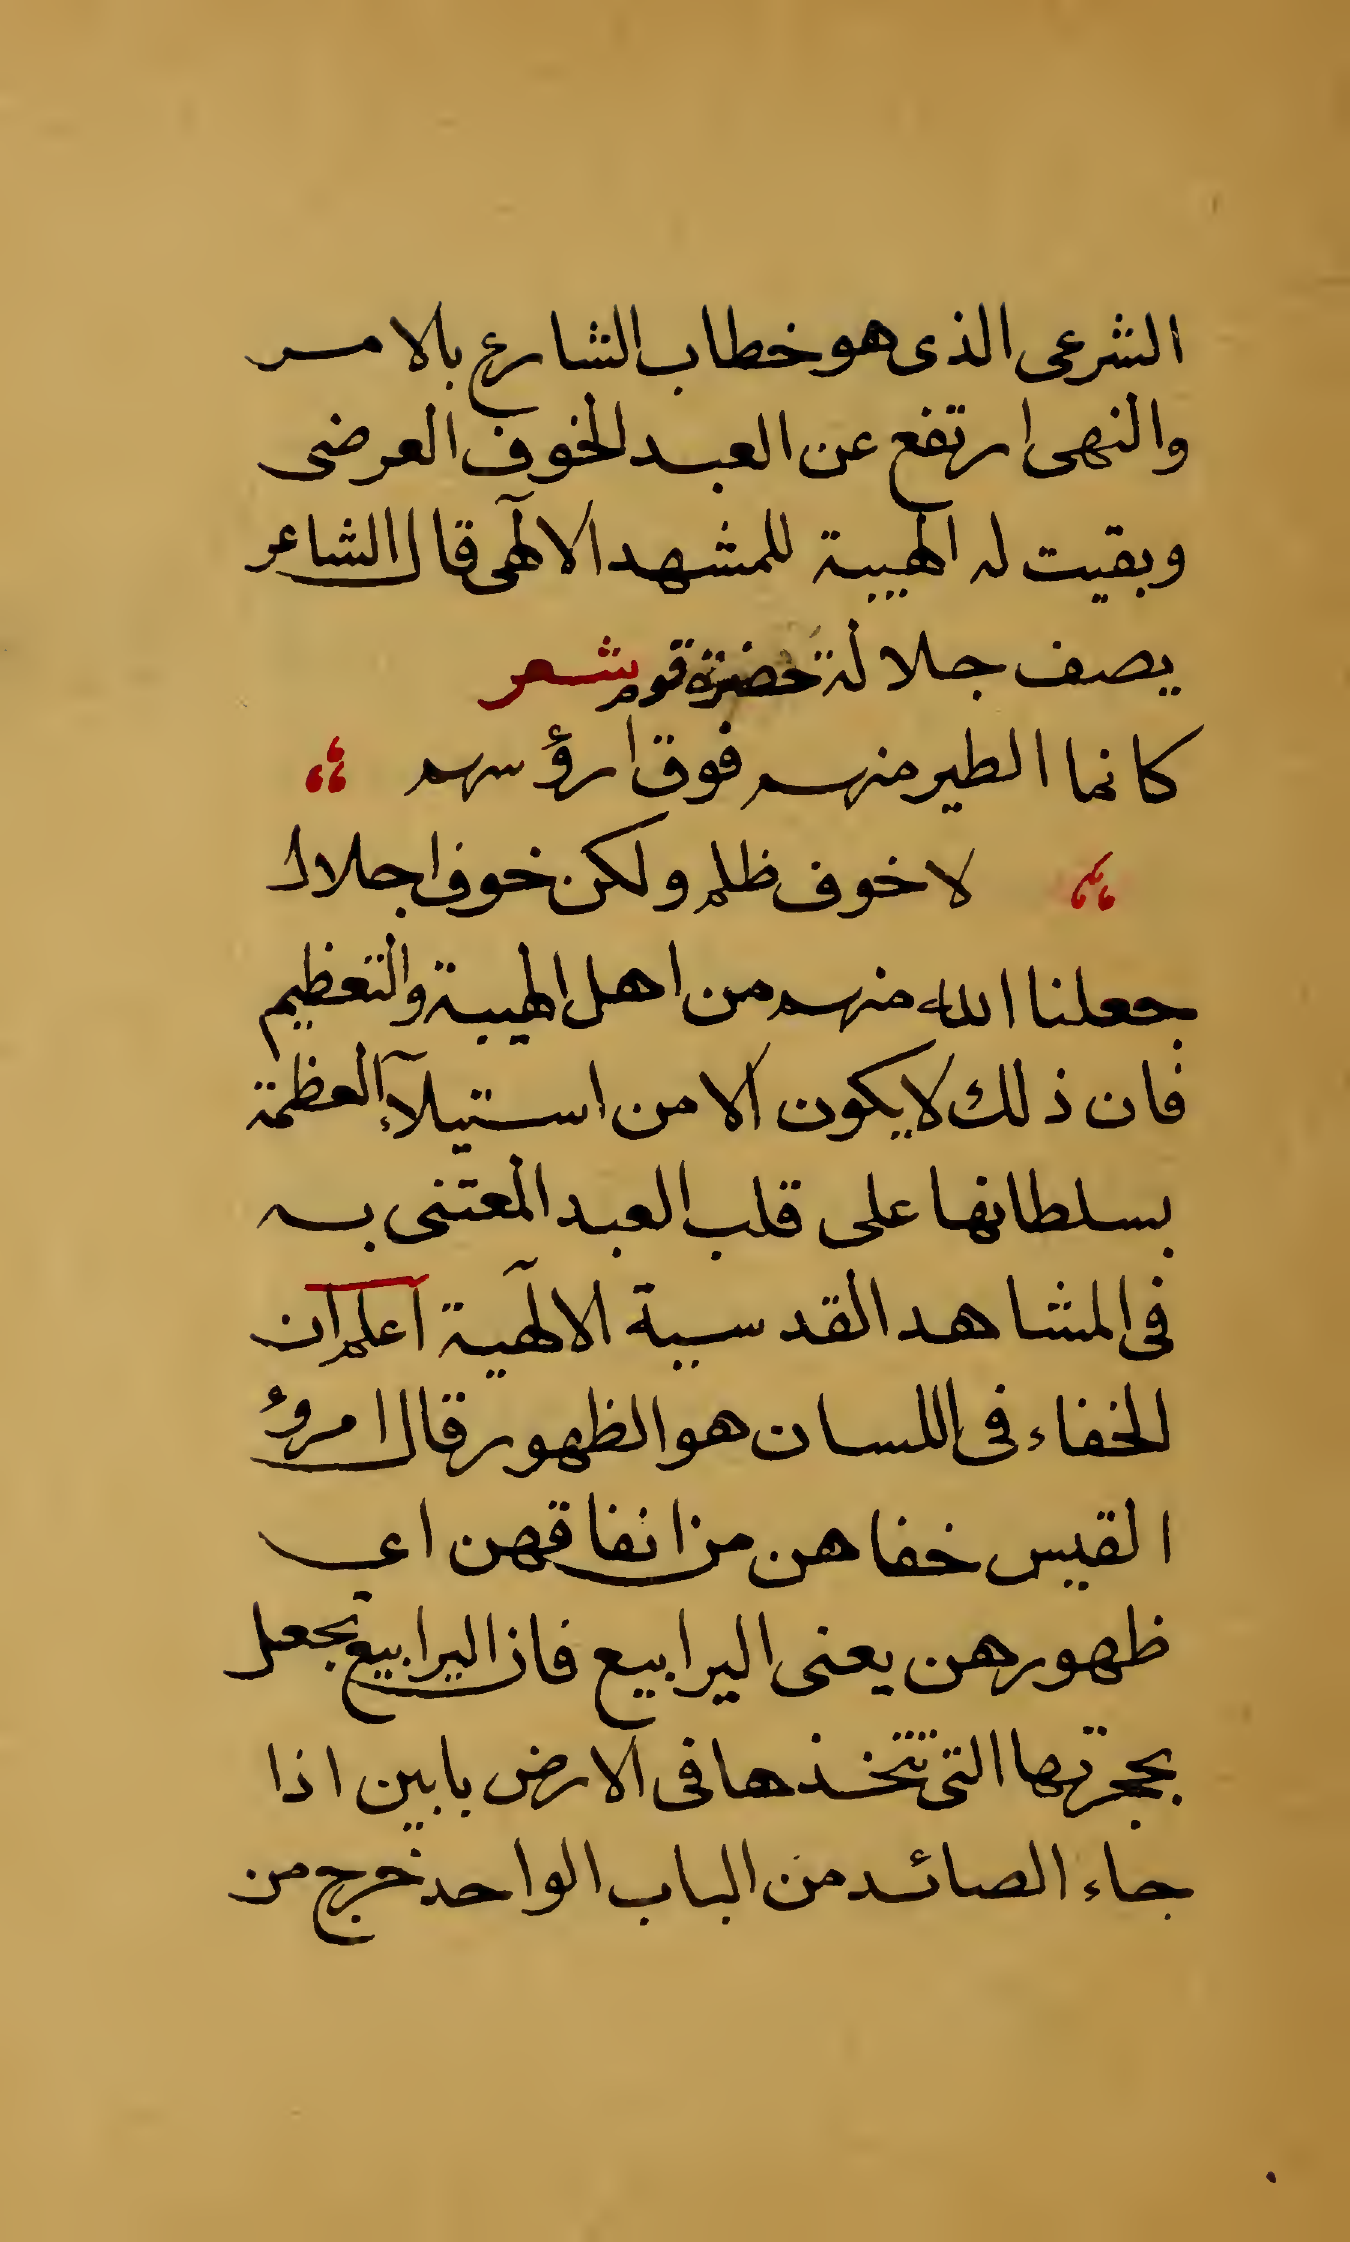 الشرعى الذى هو خطاب الشارع بالامر
والنهى ارتفع عن العبد الخوف العرضى
وبقيت له الهيبة للمشهد الالٓهى قال الشاعر
يصف جلالة حضرة قوم شعر
كانما الطير منهم فوق ارؤسهم
لا خوف ظلم ولكن خوف اجلال
جعلنا الله منهم من اهل الهيبة والتعظيم
فان ذلك لا يكون الا من استيلآء العظمة
بسلطانها على قلب العبد المعتنى به
فى المشاهد القدسية الالٓهية اعلم ان
الخفاء فى اللسان هو الظهور قال امروء
القيس خفاهن من انفاقهن اى
ظهورهن يعنى اليرابيع فان اليرابيع تجعل
بحجرتها التى تتخذها فى الارض بابين اذا
جاء الصائد من الباب الواحد خرج من